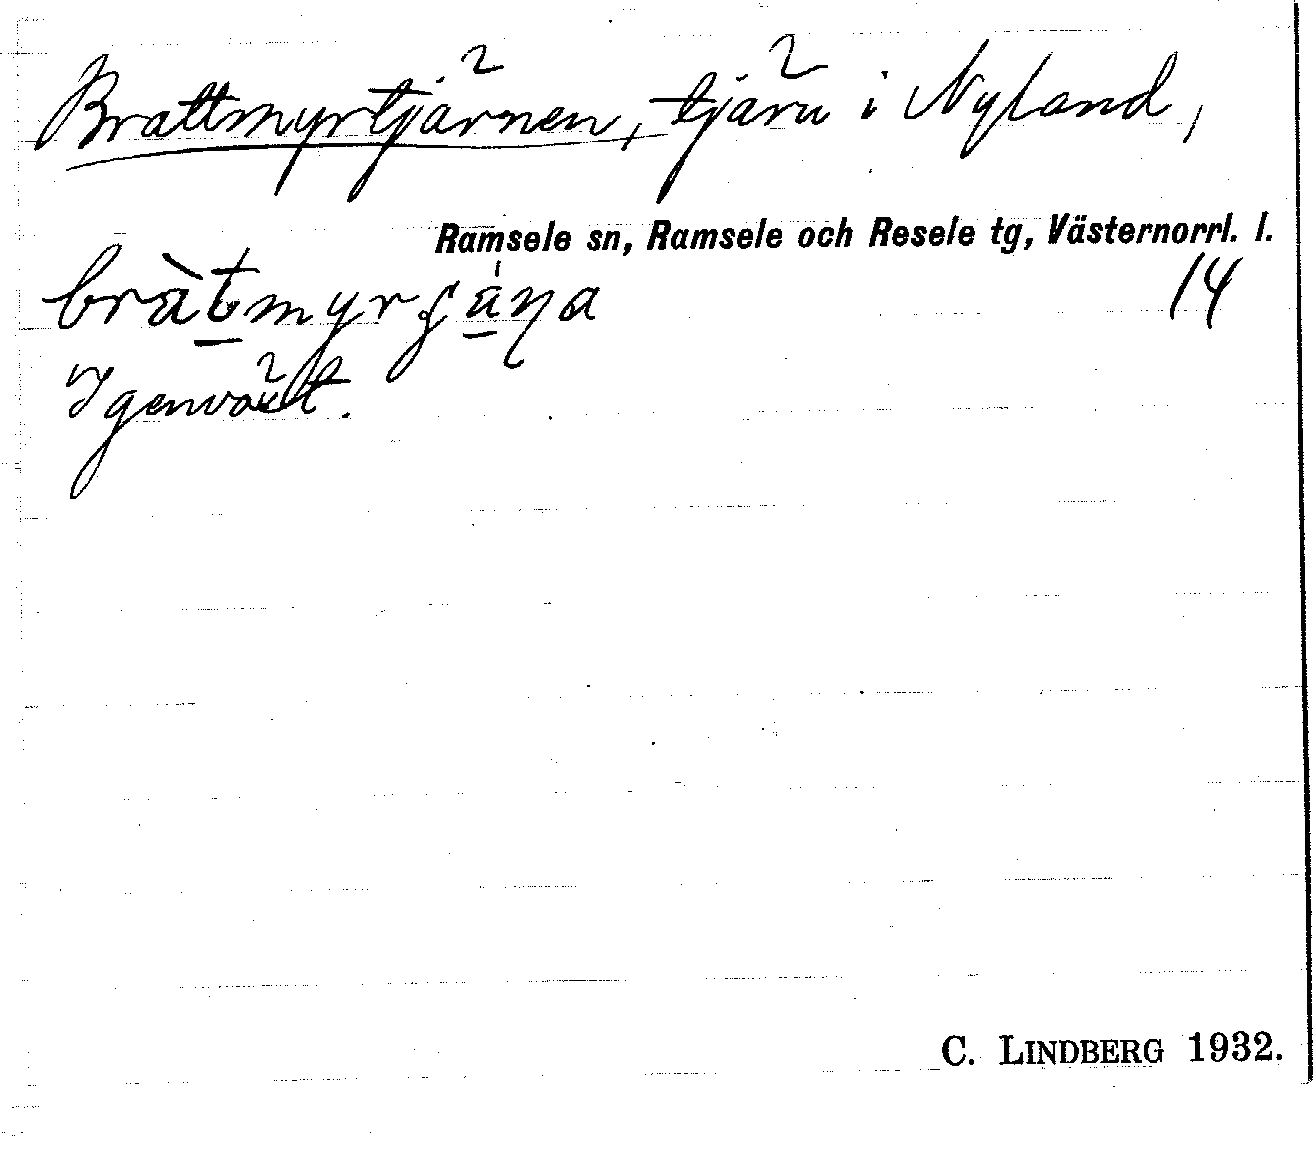 Brattmyrtjärnen, tjärn i Nyland,
Ramsele sn, Ramsele och Resele tg, Västernorrl. l.
14
Igenväxt.
C. LINDBERG 1932.